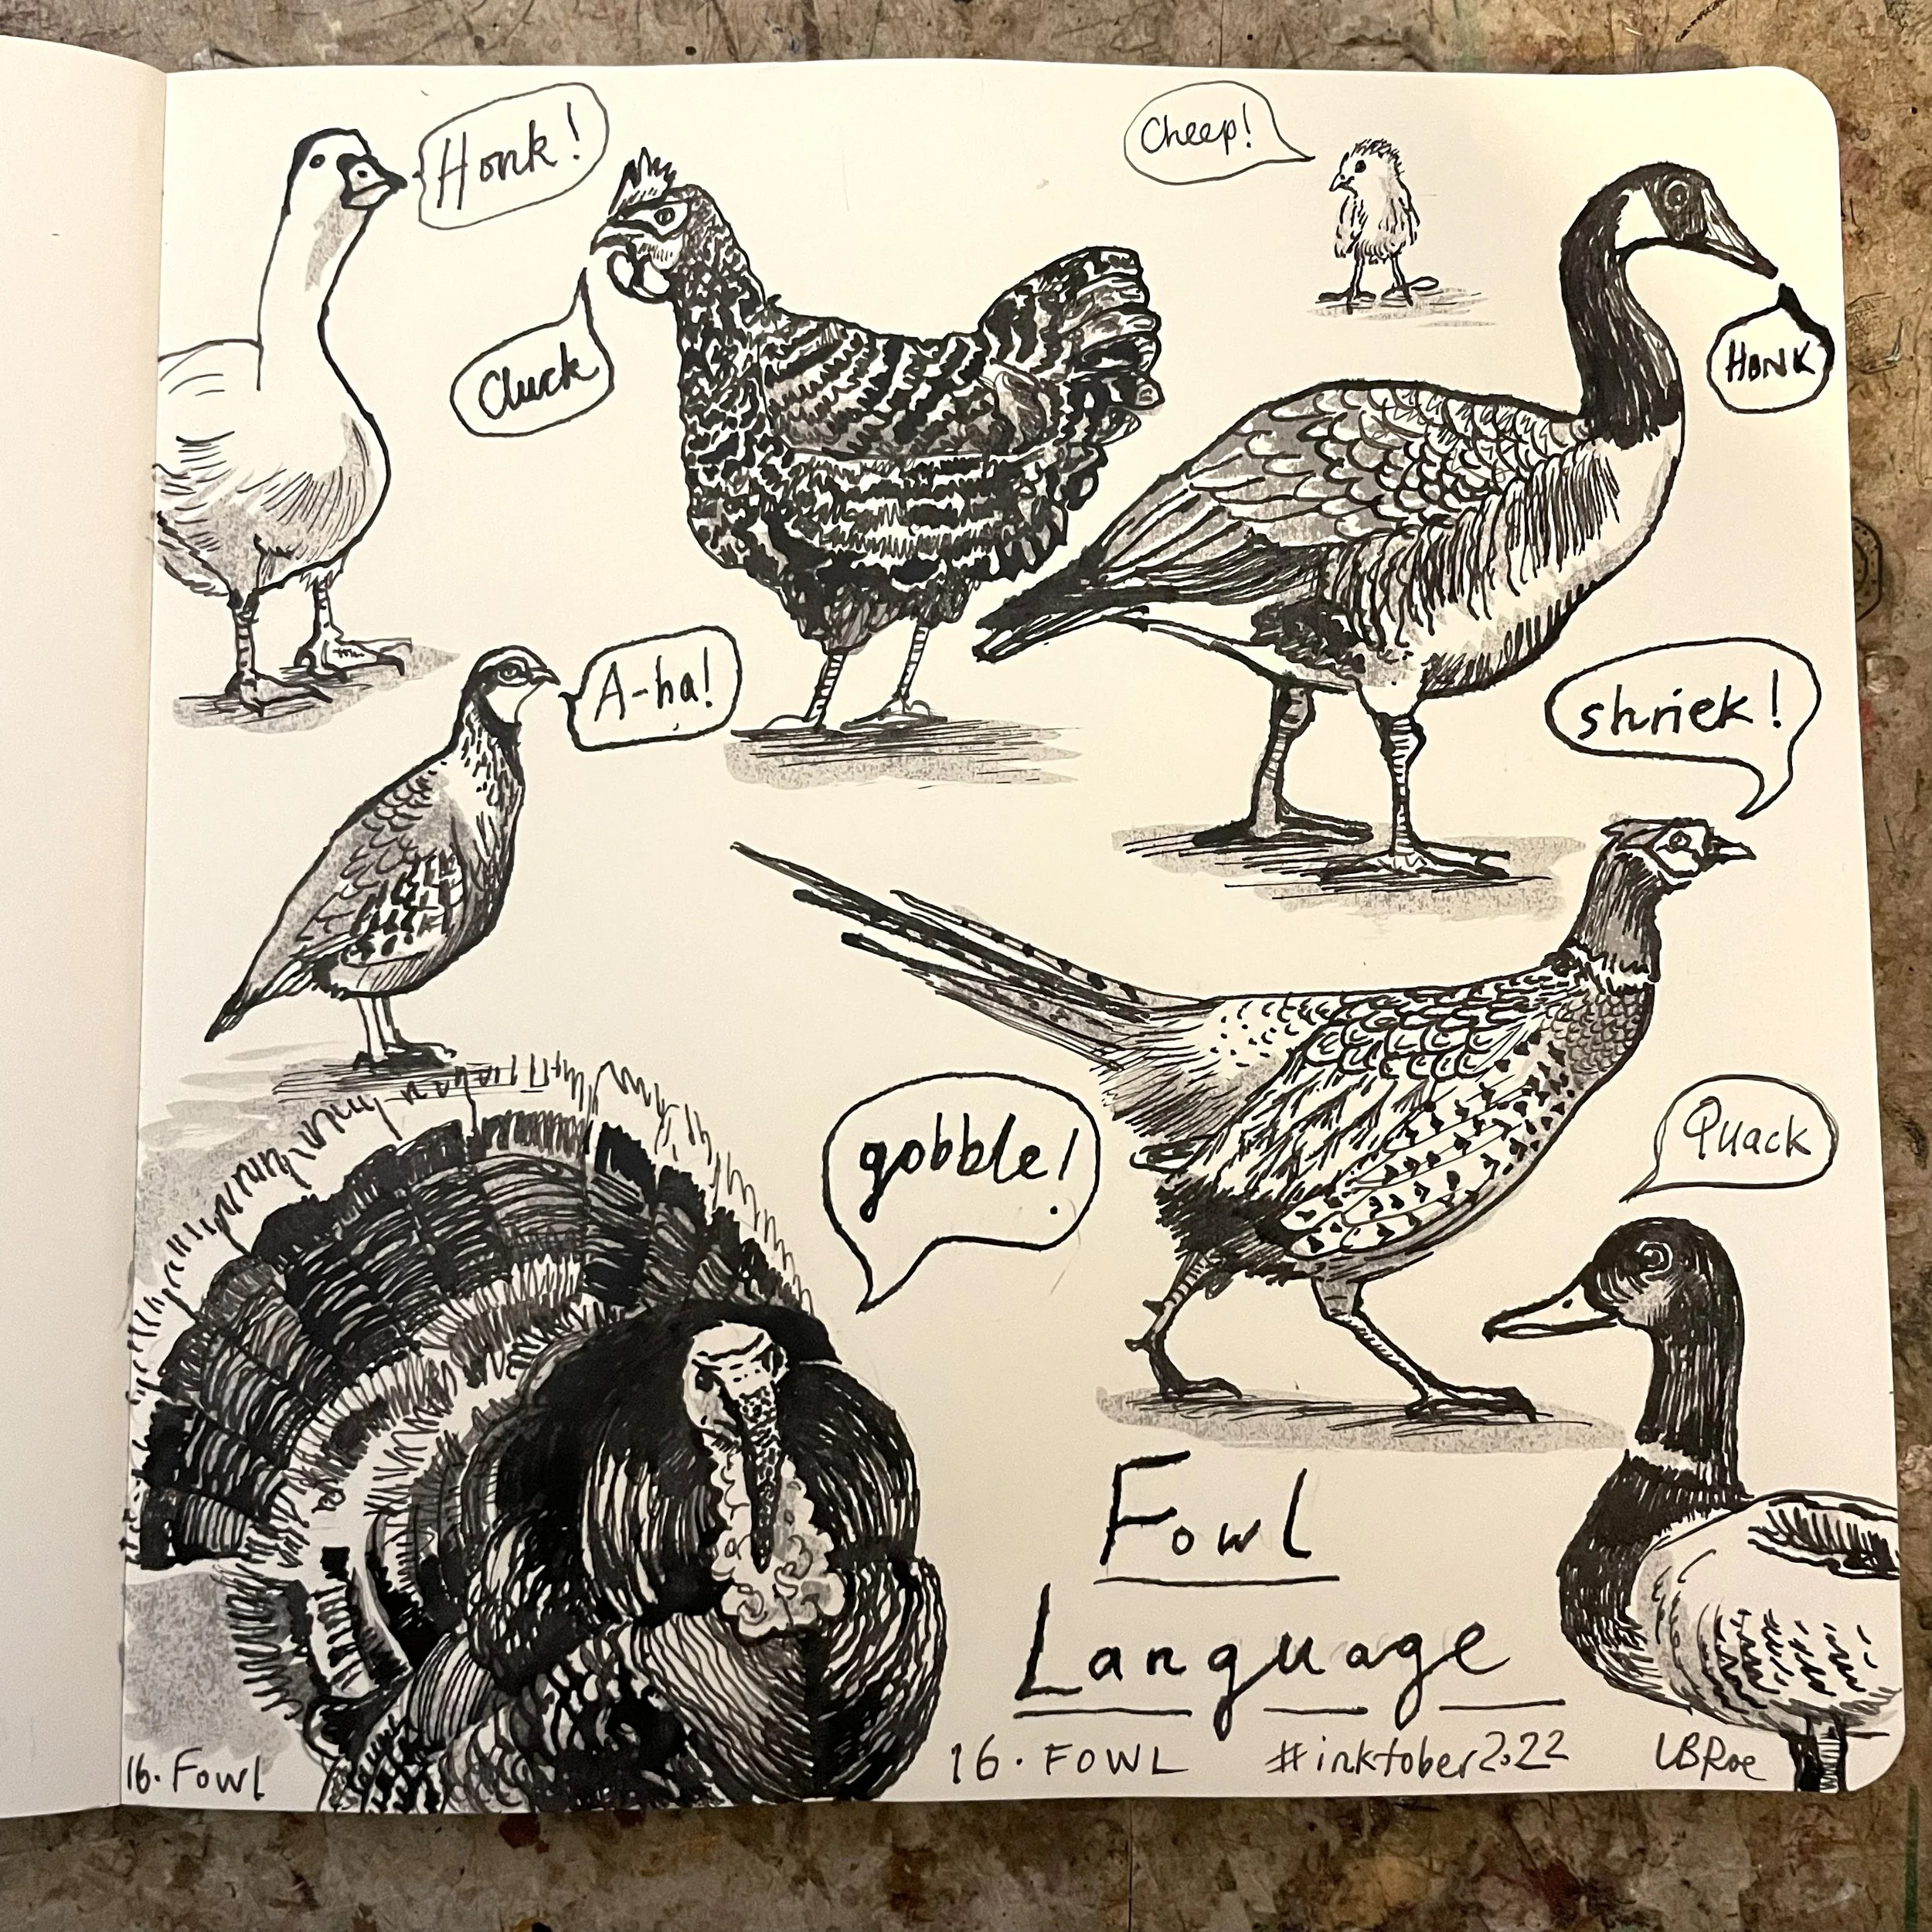 Honk!
Cheep!
Cluck
HONK
A-ha!
shriek!
gobble!
Quack
Fowl
Language
16. Fowl
16. FOWL #inktober2022 LBRoe